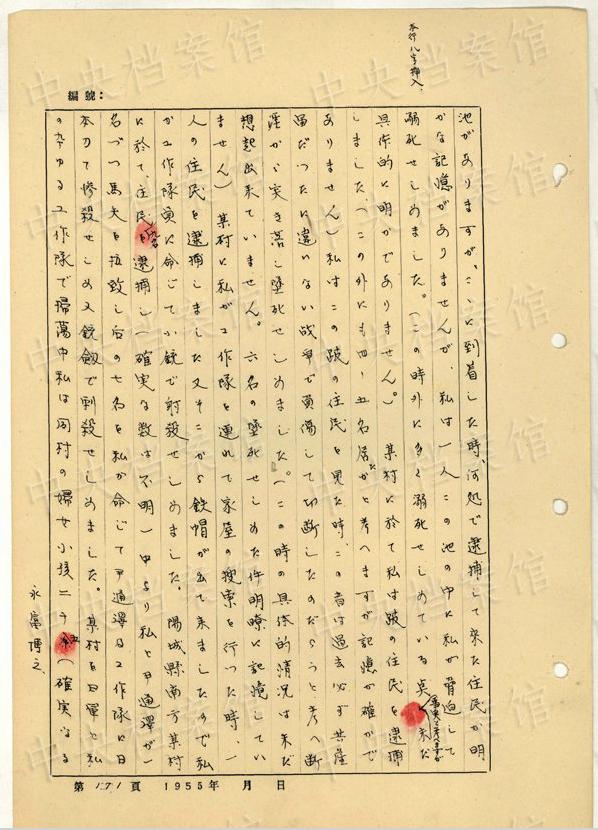 本行八字挿入.
編號：
池がありますが、こゝに到着した時、何処で逮捕して来た住民か明
かな記憶がありませんが、私は一人この池の中に私が脅迫して
溺死せしめました。（この時外に多く溺死せしめている
事実と考へますが
未だ
具体的に明かでありません。）某村に於て私は跛の住民を逮捕
しました（この外にも四、五名居たかと考へますが記憶が確かで
ありません）私はこの跛の住民を見た時、この者は過去必ず共産
軍だつたに違いない战争で負傷して切断したのだらうと考へ断
崖から突き落し墜死せしめました。（この時の具体的情況は未だ
想起出来ていません。六名の墜死せしめた件明瞭に記憶してい
ません）某村に私が工作隊を連れて家屋の搜索を行つた時、一
人の住民を逮捕しました又そこから鉄帽が出て来ましたので私
が工作隊員に命じて小銃で射殺せしめました。陽城縣南方某村
に於て、住民
名
を逮捕し（確実な数は不明）中より私と甲通澤が一
名づつ馬夫を拉致し后の七名を私が命じて甲通澤及工作隊に日
本刀で惨殺せしめ又銃劔で刺殺せしめました。某村を日軍と私
の率ゆる工作隊で掃蕩中私は同村の婦女小孩二、三
（確実なる
永富博之
第 171 頁 1955年 月 日
中央档案馆